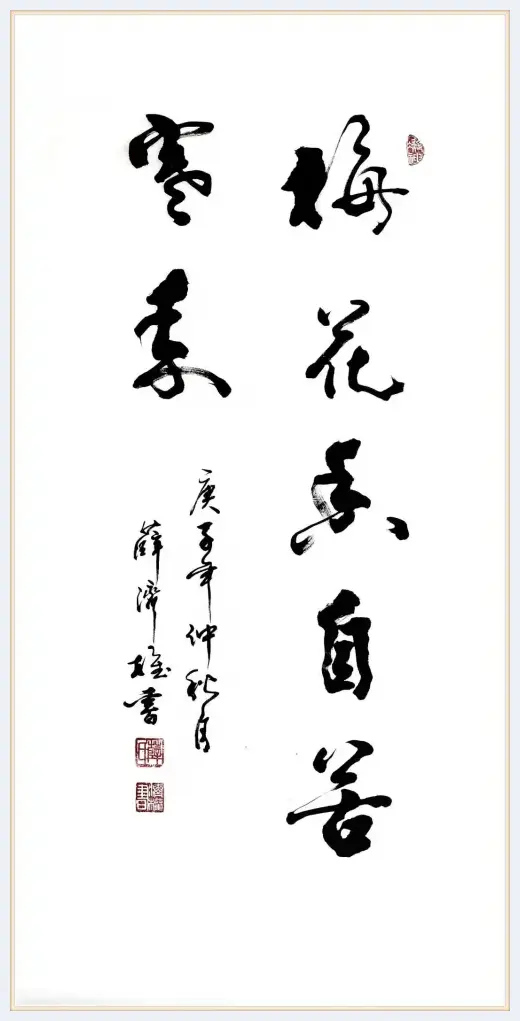 梅花香自苦
寒来
庚子年仲秋月
薛济雄书